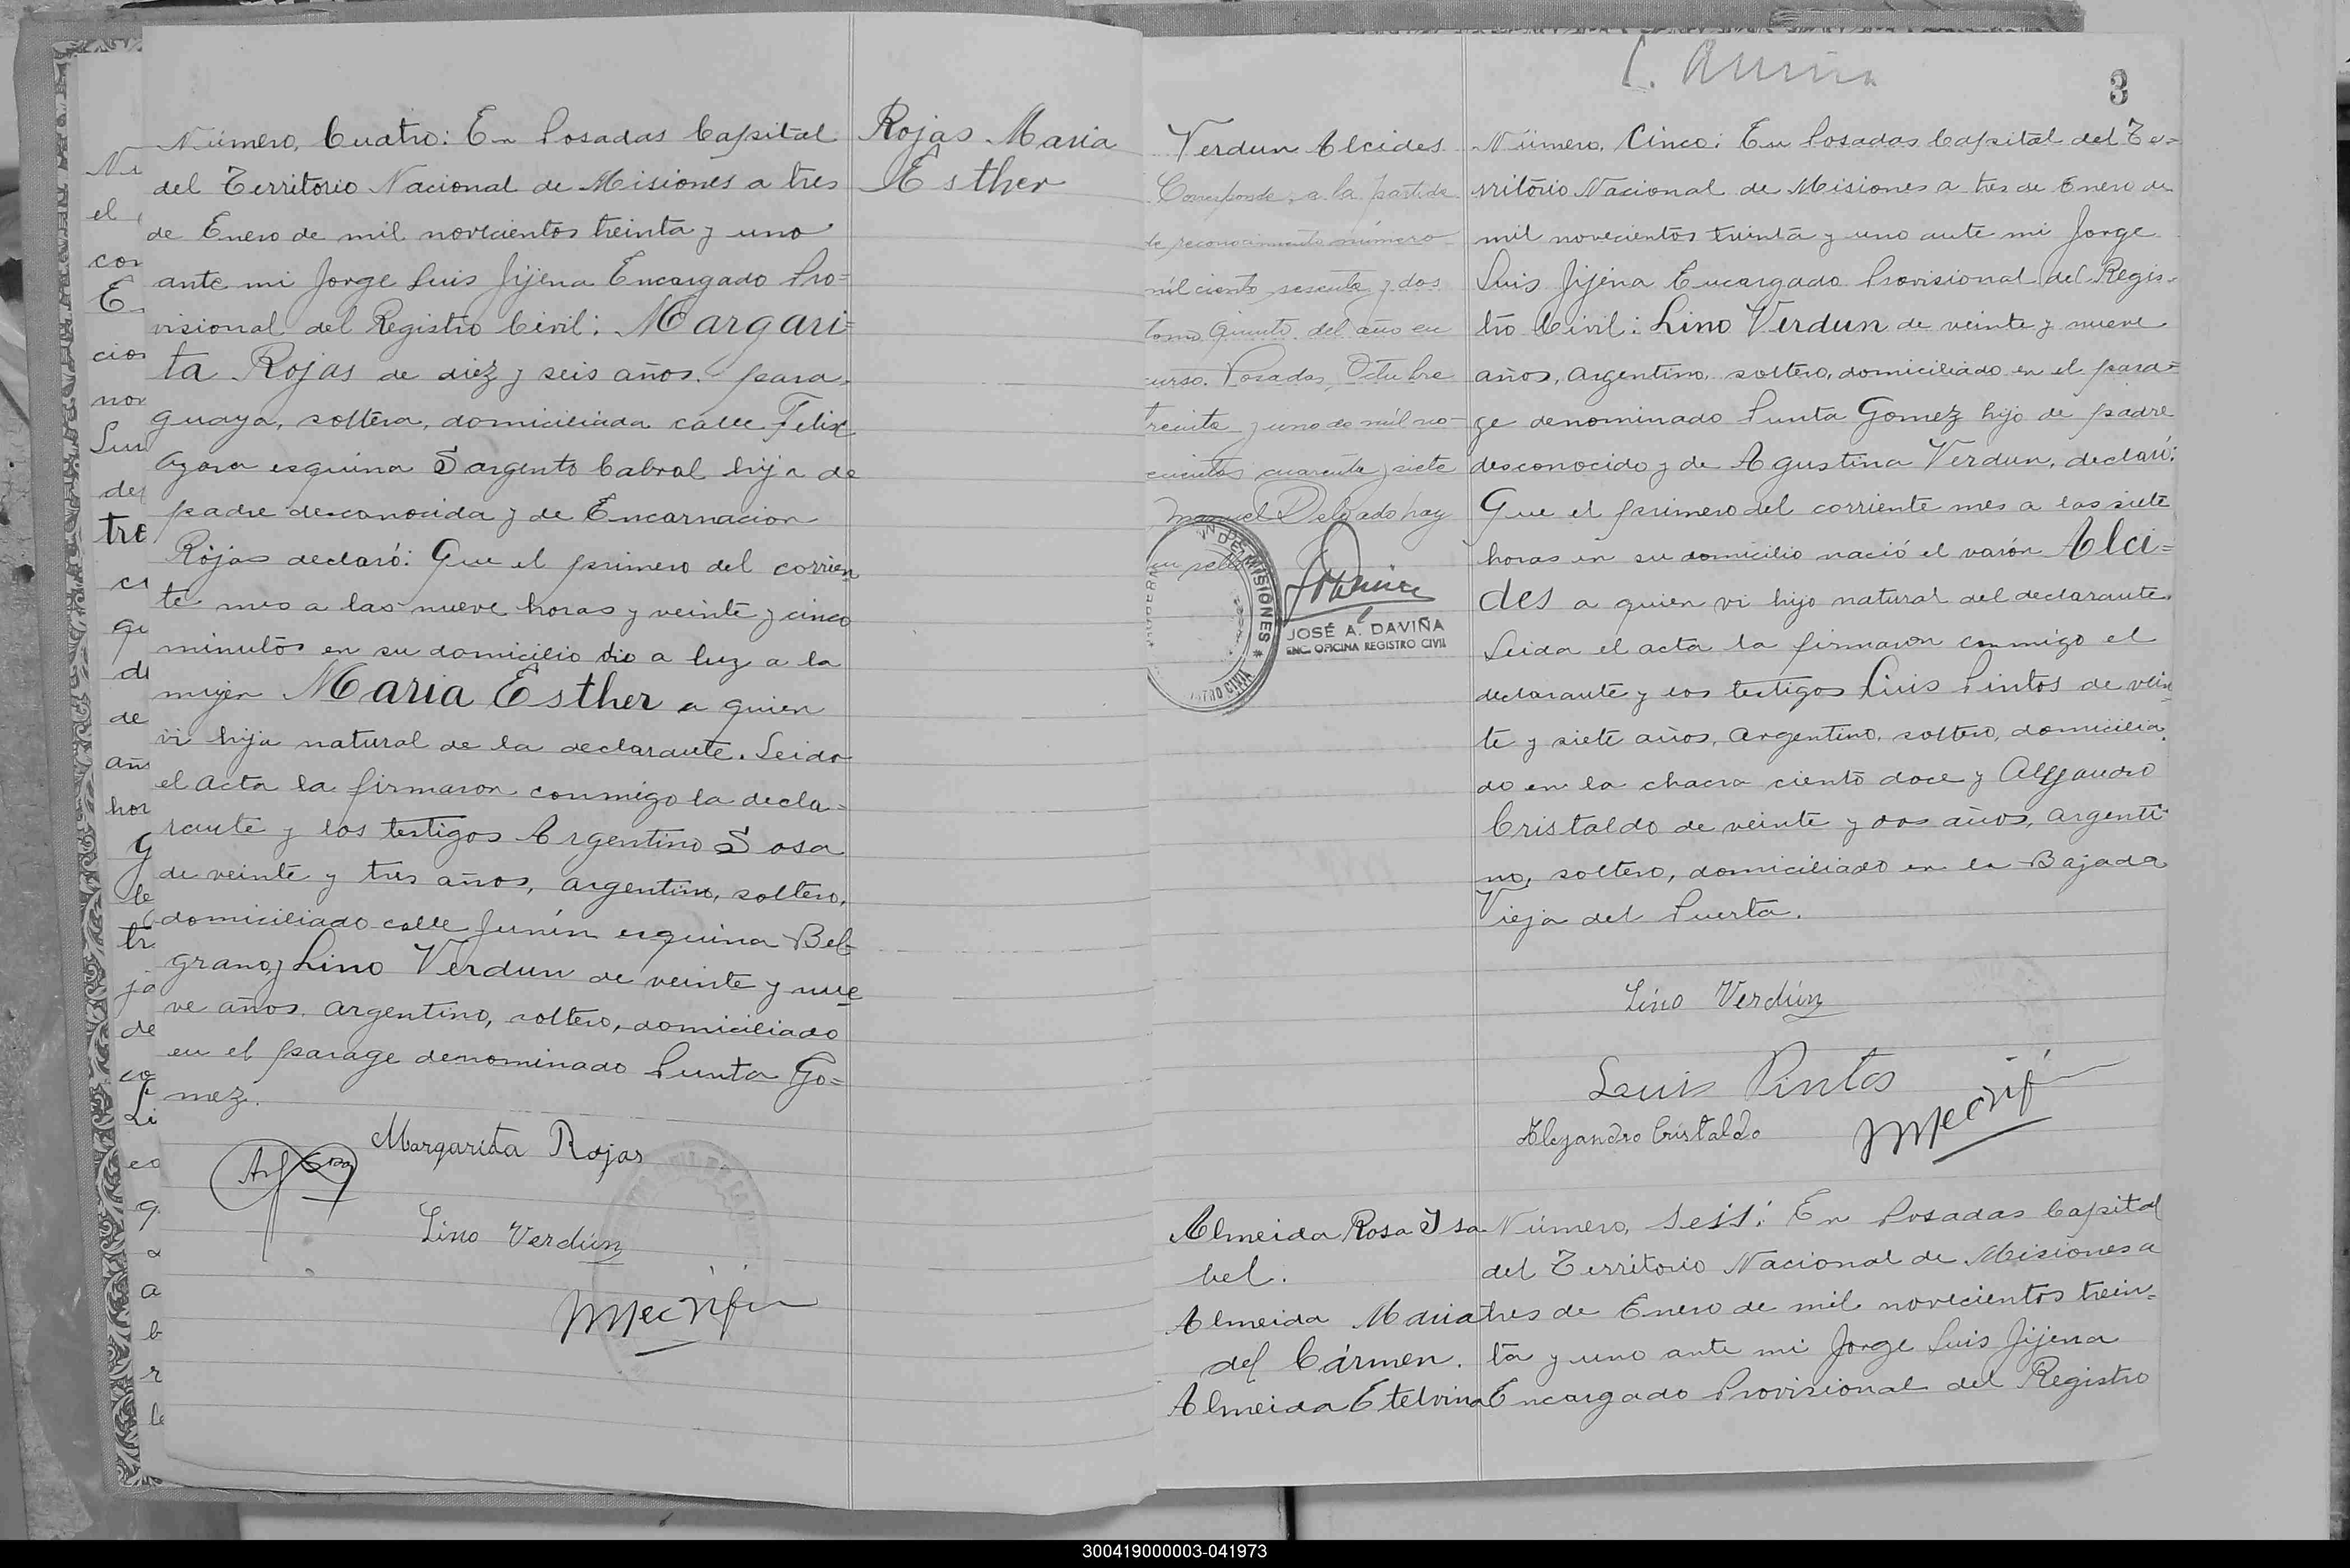 Número, Cuatro: En Posadas Capital
del Territorio Nacional de Misiones a tres
de Enero de mil novecientos treinta y uno
ante mi Jorge Luis Jijena Encargado Pro=
visional del Registro Civil: Margari=
ta Rojas de diez y seis años, para=
guaya, soltera, domiciliada calle Felix
Azara esquina Sargento Cabral hija de
padre desconocida y de Encarnacion
Rojas declaró: Que el primero del corrien
te mes a las nueve horas y veinte y cinco
minutos en su domicilio dio a luz a la
mujer Maria Esther a quien
vi hija natural de la declarante. Leida
el acta la firmaron conmigo la decla=
rante y los testigos Argentino Sosa
de veinte y tres años, argentino, soltero,
domiciliado calle Junín esquina Bel=
grano, y Lino Verdun de veinte y nue
ve años, argentino, soltero, domiciliado
en el parage denominado Punta Go=
mez.
Margarita Rojas
Lino Verdún
Rojas Maria
Esther
3
Verdun Alcides
Corresponde a la partida
de reconocimiento número
mil ciento sesenta y dos
tomo quinto del año en
curso. Posadas, Octubre
treinta y uno de mil no-
vecientos cuarenta y siete
Manuel Delgado hay
un sello
DE MISIONES
JOSÉ A. DAVIÑA
ENC. OFICINA REGISTRO CIVIL
Número, Cinco: En Posadas Capital del Te=
rritorio Nacional de Misiones a tres de Enero de
mil novecientos treinta y uno ante mi Jorge
Luis Jijena Encargado Provisional del Regis=
tro Civil: Lino Verdun de veinte y nueve
años, argentino, soltero, domiciliado en el para=
ge denominado Punta Gomez hijo de padre
desconocido y de Agustina Verdun, declaró:
Que el primero del corriente mes a las siete
horas en su domicilio nació el varón Alci=
des a quien vi hijo natural del declarante.
Leida el acta la firmaron conmigo el
declarante y los testigos Luis Pintos de vein
te y siete años, argentino, soltero, domicilia
do en la chacra ciento doce y Alejandro
Cristaldo de veinte y dos años, argenti
no, soltero, domiciliado en la Bajada
Vieja del Puerto.
Lino Verdún
Luis Pintos
Alejandro Cristaldo
Almeida Rosa Isa
bel.
Almeida Maria
del Cármen.
Almeida Etelvina
Número, Seis: En Posadas Capital
del Territorio Nacional de Misiones a
tres de Enero de mil novecientos trein=
ta y uno ante mi Jorge Luis Jijena
Encargado Provisional del Registro
300419000003-041973